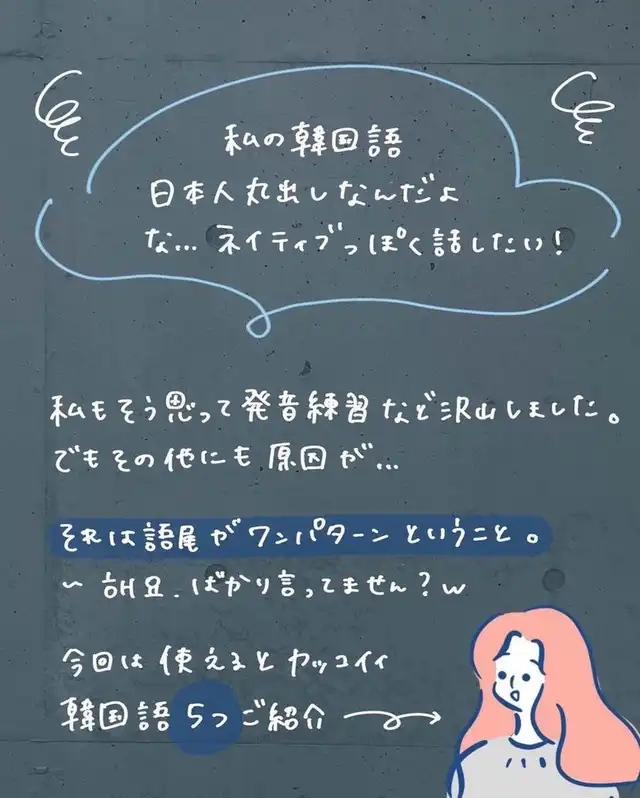 私の韓国語
日本人丸出しなんだよ
な... ネイティブっぽく話したい!
私もそう思って発音練習など沢山しました。
でもその他にも原因が...
それは語尾がワンパターンということ。
~ 해요. ばかり言ってません?w
今回は使えるとカッコイイ
韓国語5つご紹介